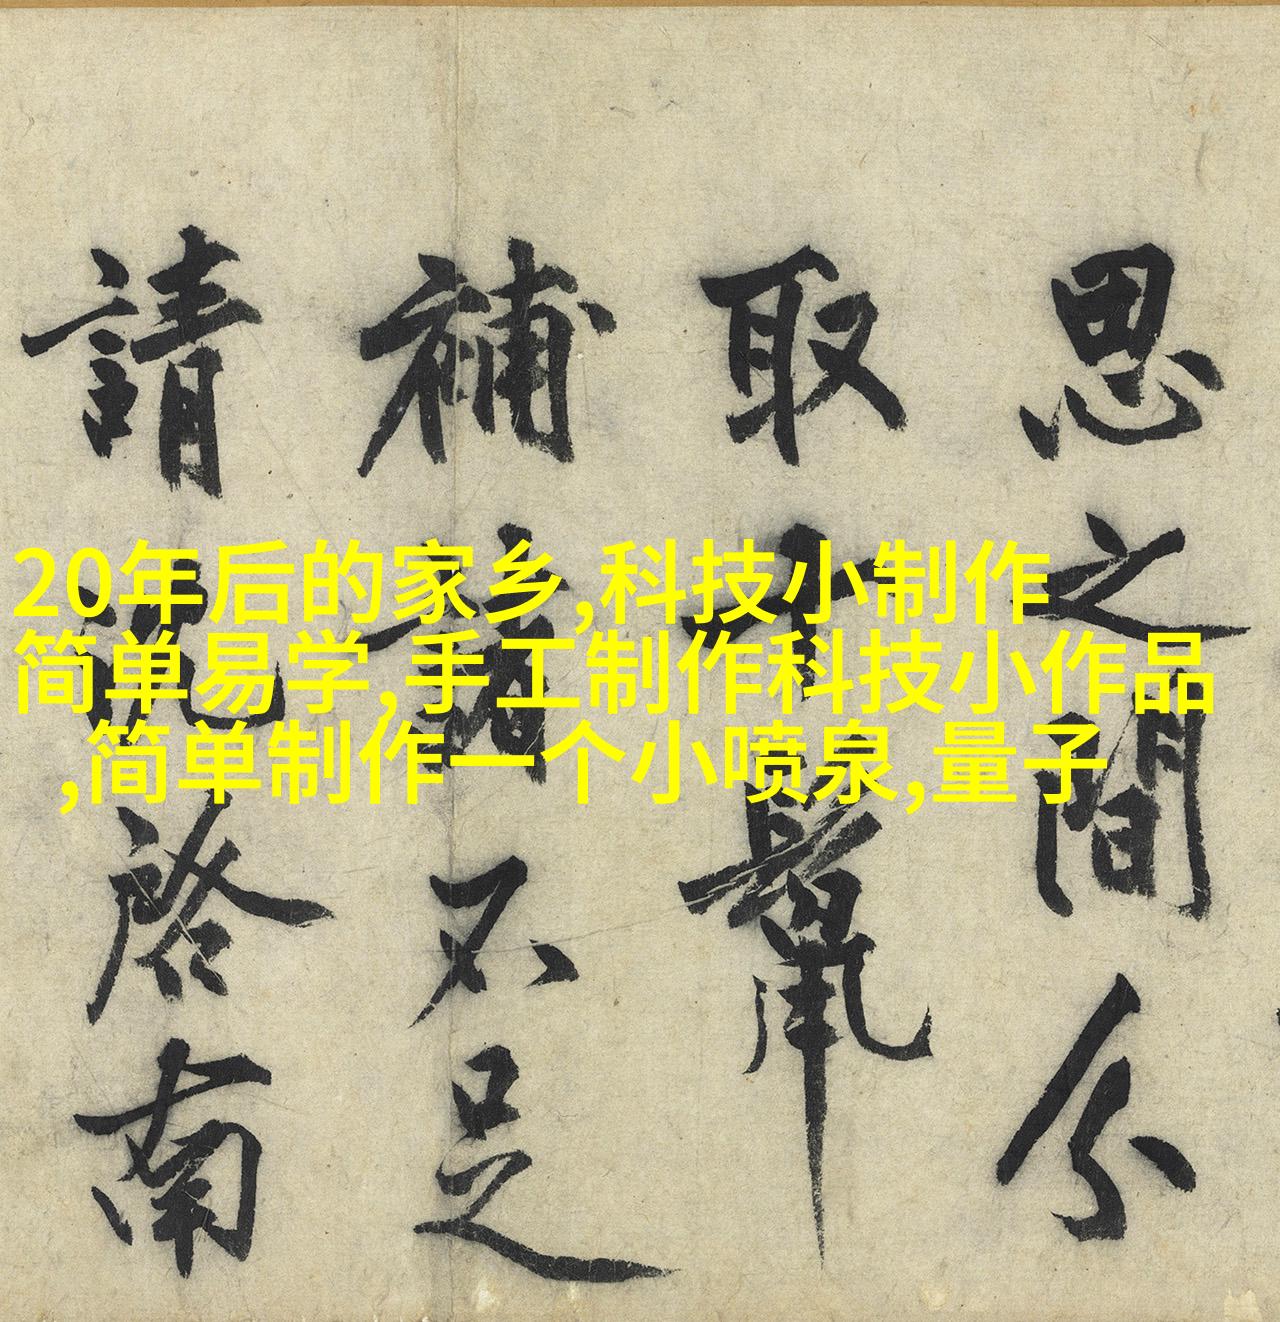 20年后的家乡,科技小制作
简单易学,手工制作科技小作品
,简单制作一个小喷泉,量子
思之間分
取鬣
補諸不足
請啓南